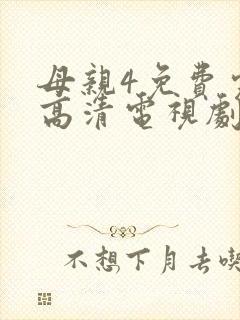 母親4免費
高清電視劇
不想下月去